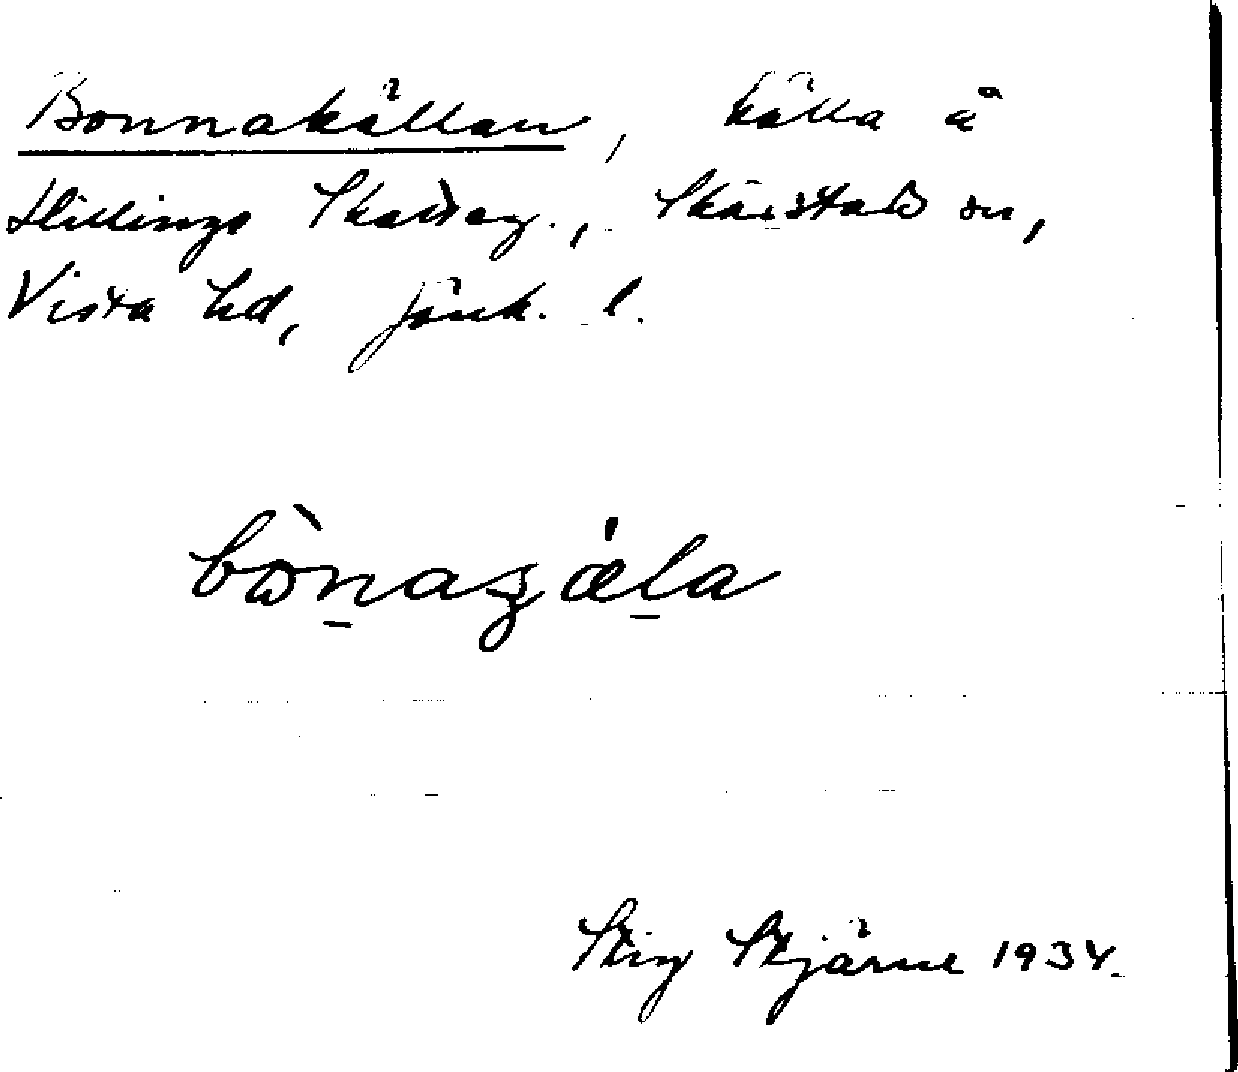 Bonnakällan, källa å
Hillings Skatteg., Skärstads sn,
Vista hd, Jönk. l.
bònazǽla
Stig Stjärne 1934.